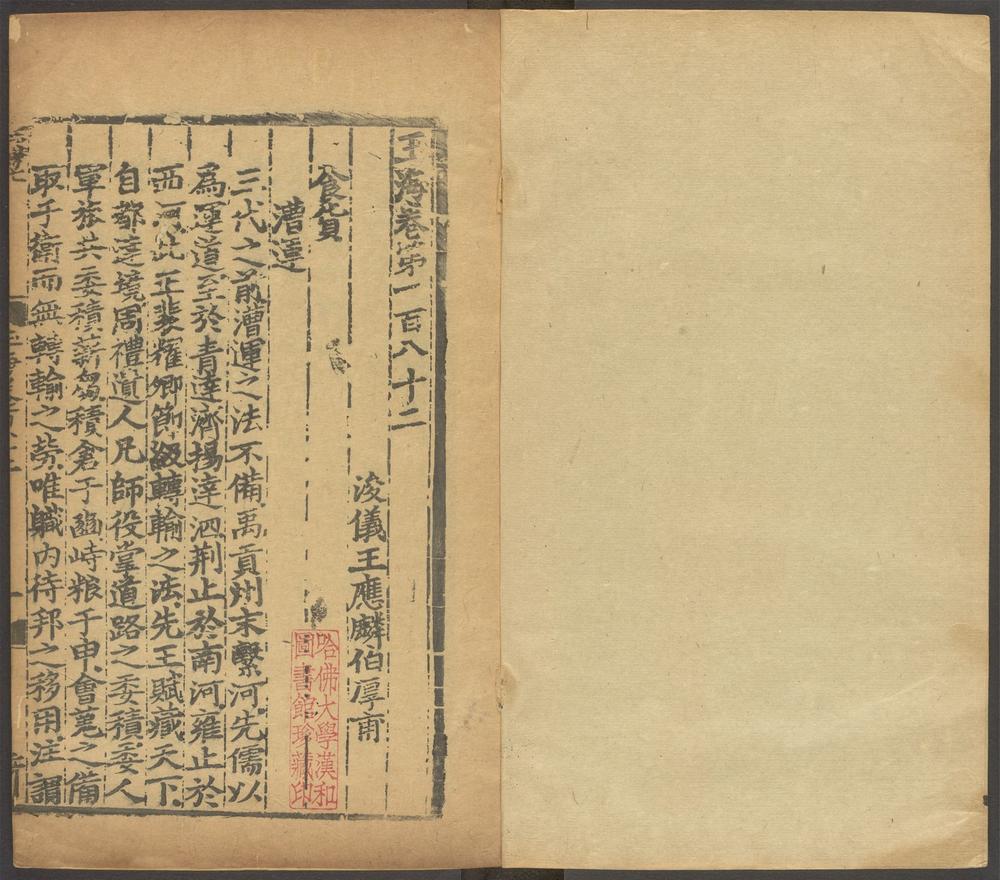 玉海卷第一百八十二
浚儀王應麟伯厚甫
食貨
漕運
三代之前漕運之法不備禹貢州末繫河先儒以
爲運道至於青達濟揚達泗荆止於南河雍止於
西河此正裴耀卿節級轉輸之法先王賦藏天下
自都達境周禮遺人凡師役掌道路之委積委人
軍旅共委積薪芻積倉于豳峙粮于申會茣之備
取于衛而無轉輸之勞唯職內待邦之移用注謂
哈佛大學漢和
圖書館珍藏印